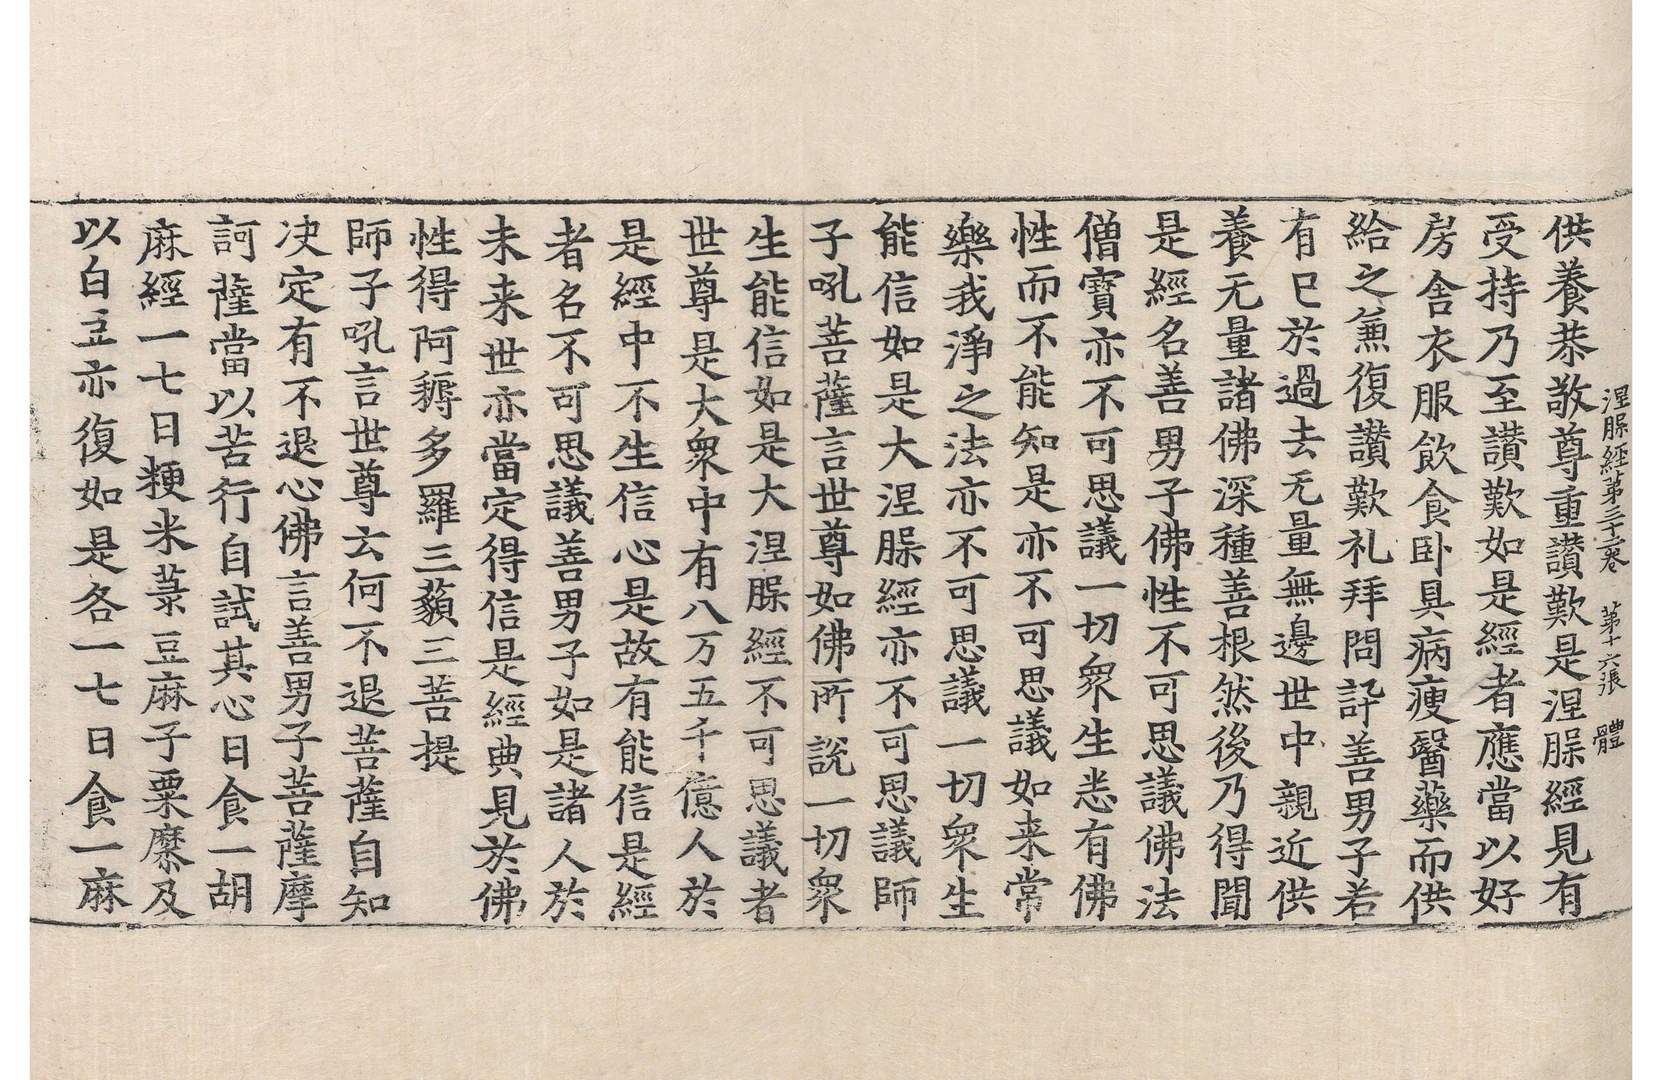 涅槃經第三十二卷 第十六張 體
供養恭敬尊重讚歎是涅槃經見有
受持乃至讚歎如是經者應當以好
房舍衣服飲食卧具病瘦醫藥而供
給之兼復讚歎礼拜問訊善男子若
有已於過去无量無邊世中親近供
養无量諸佛深種善根然後乃得聞
是經名善男子佛性不可思議佛法
僧寶亦不可思議一切衆生悉有佛
性而不能知是亦不可思議如来常
樂我淨之法亦不可思議一切衆生
能信如是大涅槃經亦不可思議師
子吼菩薩言世尊如佛所說一切衆
生能信如是大涅槃經不可思議者
世尊是大衆中有八万五千億人於
是經中不生信心是故有能信是經
者名不可思議善男子如是諸人於
未来世亦當定得信是經典見於佛
性得阿耨多羅三藐三菩提
師子吼言世尊云何不退菩薩自知
决定有不退心佛言善男子菩薩摩
訶薩當以苦行自試其心日食一胡
麻經一七日粳米菉豆麻子粟糜及
以白豆亦復如是各一七日食一麻